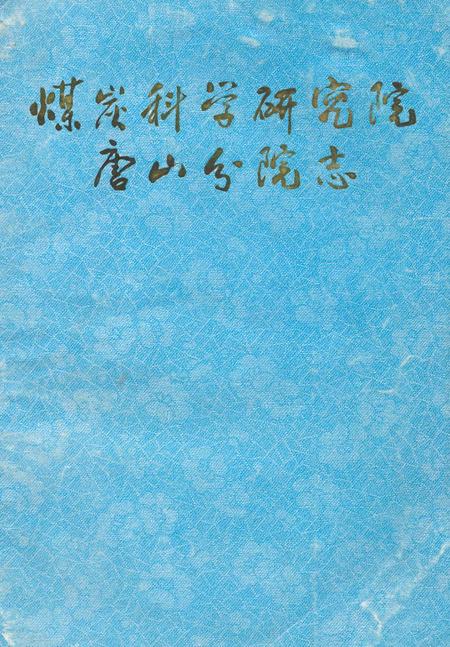 煤炭科学研究院
唐山分院志